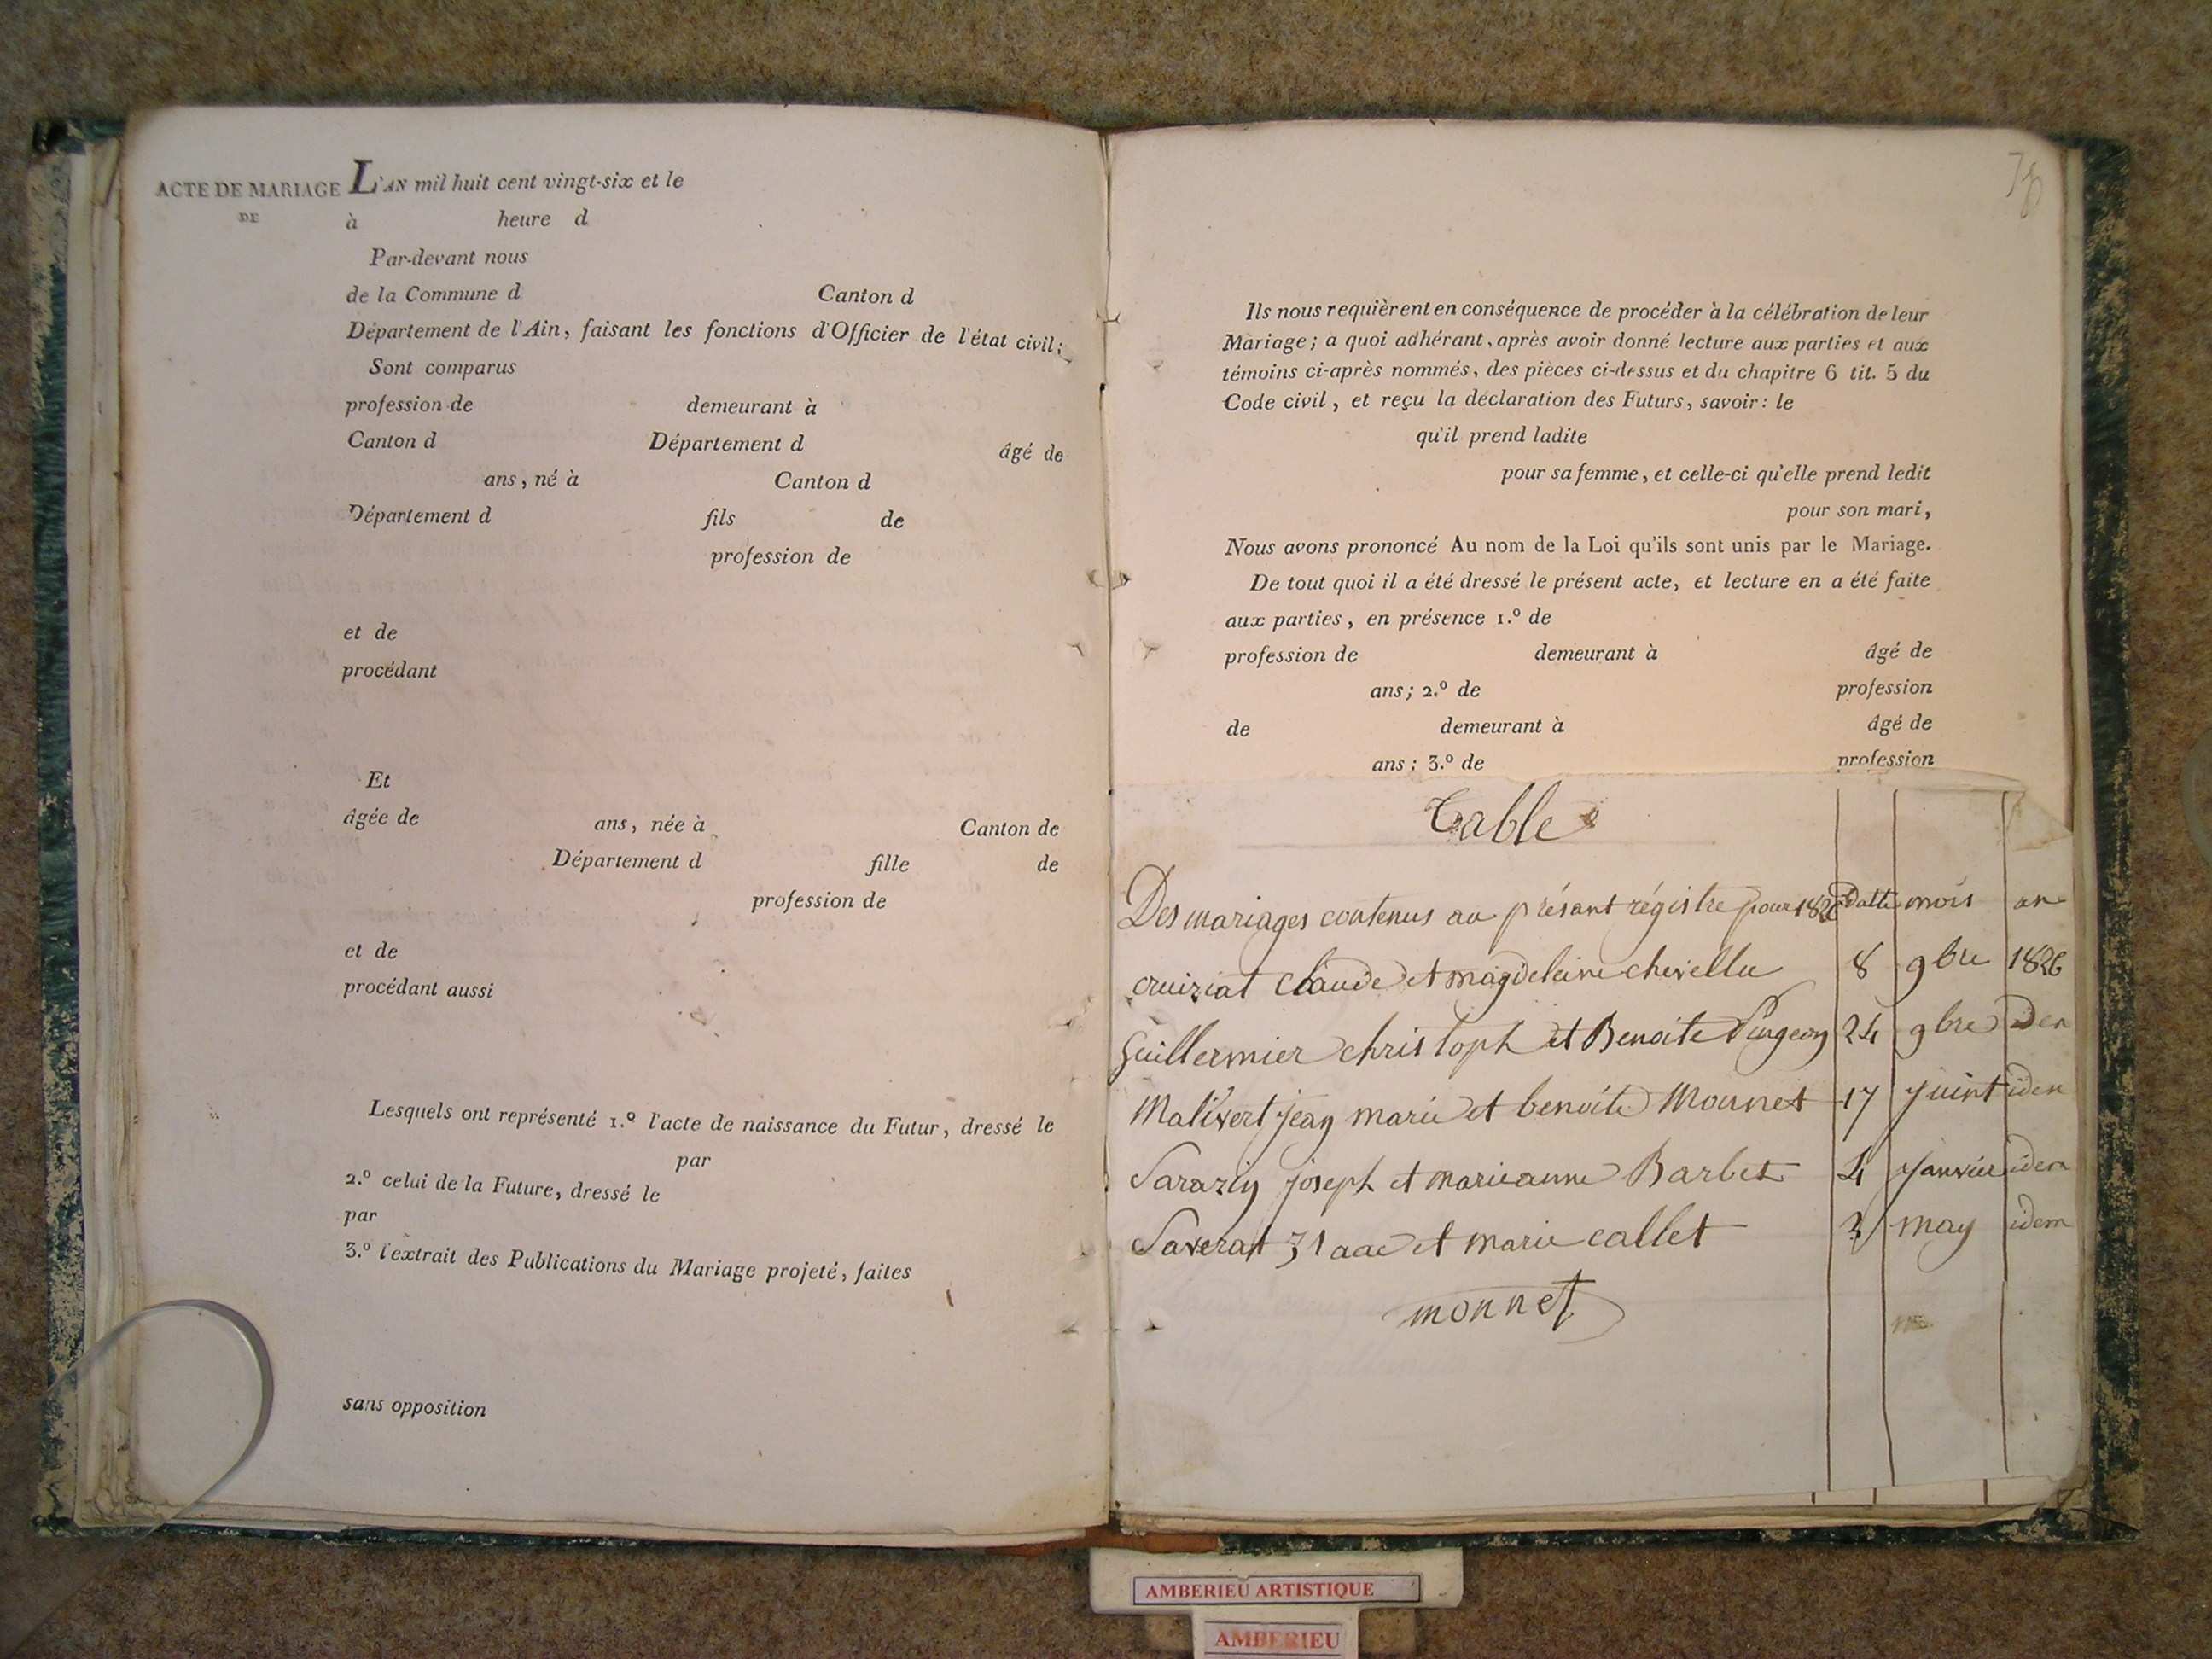 ACTE DE MARIAGE
DE
L'AN mil huit cent vingt-six et le
à heure d
Par-devant nous
de la Commune d Canton d
Département de l'Ain, faisant les fonctions d'Officier de l'état civil;
Sont comparus
profession de demeurant à
Canton d Département d âgé de
ans, né à Canton d
Département d fils de
profession de
et de
procédant
Et
âgée de ans, née à Canton de
Département d fille de
profession de
et de
procédant aussi
Lesquels ont représenté 1.º l'acte de naissance du Futur, dressé le
par
2.º celui de la Future, dressé le
par
3.º l'extrait des Publications du Mariage projeté, faites
sans opposition
78
Ils nous requièrent en conséquence de procéder à la célébration de leur
Mariage; a quoi adhérant, après avoir donné lecture aux parties et aux
témoins ci-après nommés, des pièces ci-dessus et du chapitre 6 tit. 5 du
Code civil, et reçu la déclaration des Futurs, savoir: le
qu'il prend ladite
pour sa femme, et celle-ci qu'elle prend ledit
pour son mari,
Nous avons prononcé Au nom de la Loi qu'ils sont unis par le Mariage.
De tout quoi il a été dressé le présent acte, et lecture en a été faite
aux parties, en présence 1.º de
profession de demeurant à âgé de
ans; 2.º de profession
de demeurant à âgé de
ans; 3.º de profession
Table
Des mariages contenus au présant régistre pour 1826 Datte mois an
cruiziat Claude et magdeleine chevellu 8 9bre 1826
Guillermier christoph et Benoite Pingeon 24 9bre iden
Malivert jean marie et benoite Monnet 17 juint iden
Sarazin joseph et marieanne Barbet 4 janvier idem
Saverat Isaac et marie callet 3 may idem
monnet
AMBERIEU ARTISTIQUE
AMBERIEU